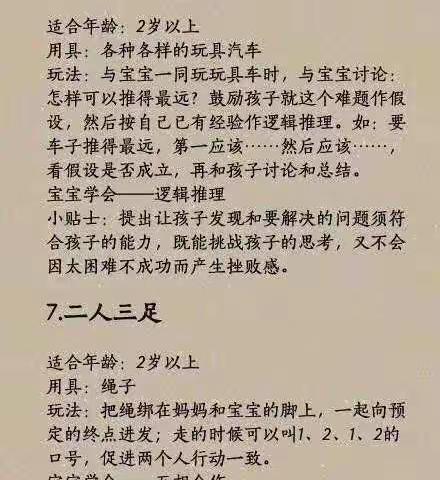 适合年龄：2岁以上
用具：各种各样的玩具汽车
玩法：与宝宝一同玩玩具车时，与宝宝讨论：
怎样可以推得最远？鼓励孩子就这个难题作假
设，然后按自己已有经验作逻辑推理。如：要
车子推得最远，第一应该……然后应该……，
看假设是否成立，再和孩子讨论和总结。
宝宝学会——逻辑推理
小贴士：提出让孩子发现和要解决的问题须符
合孩子的能力，既能挑战孩子的思考，又不会
因太困难不成功而产生挫败感。
7.二人三足
适合年龄：2岁以上
用具：绳子
玩法：把绳绑在妈妈和宝宝的脚上，一起向预
定的终点进发；走的时候可以叫1、2、1、2的
口号，促进两个人行动一致。
宝宝学会——互相合作